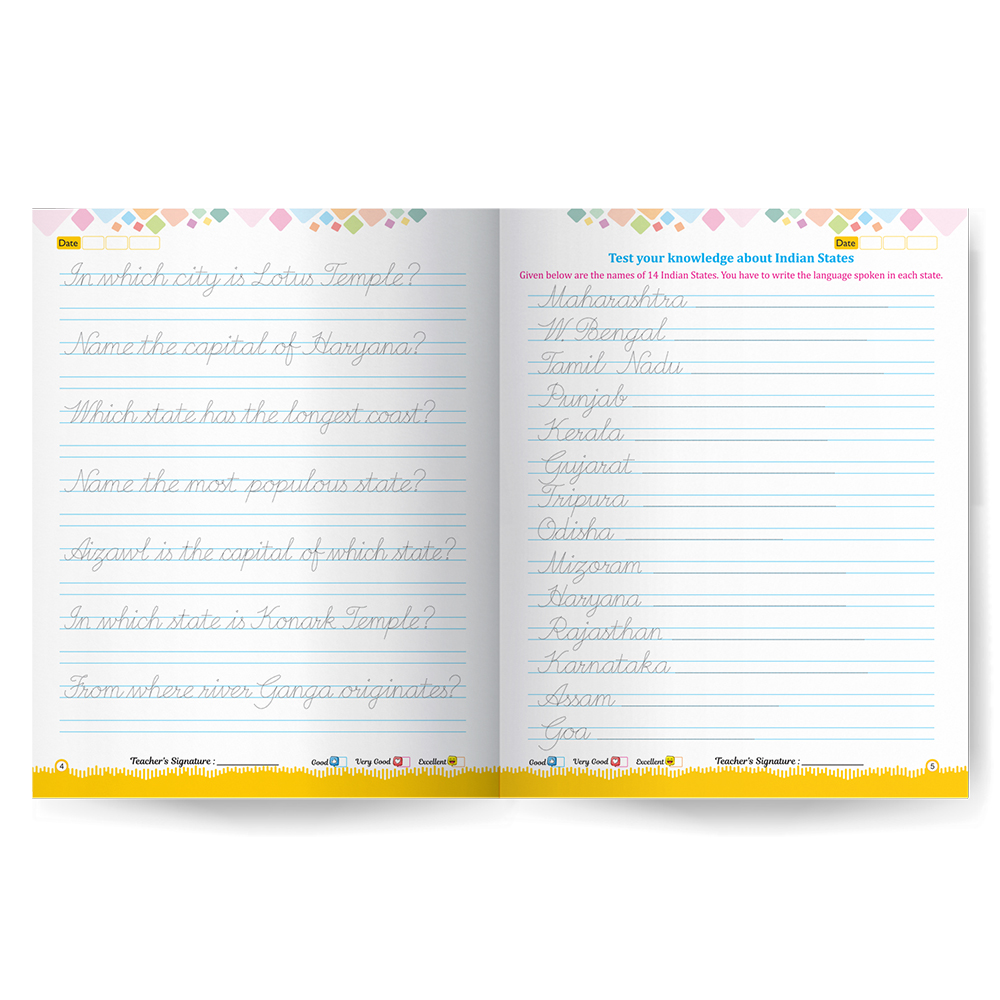 Date
In which city is Lotus Temple?
Name the capital of Haryana?
Which state has the longest coast?
Name the most populous state?
Aizawl is the capital of which state?
In which state is Konark Temple?
From where river Ganga originates?
4
Teacher's Signature :
Good
Very Good
Excellent
Date
Test your knowledge about Indian States
Given below are the names of 14 Indian States. You have to write the language spoken in each state.
Maharashtra
W. Bengal
Tamil Nadu
Punjab
Kerala
Gujarat
Tripura
Odisha
Mizoram
Haryana
Rajasthan
Karnataka
Assam
Goa
Good
Very Good
Excellent
Teacher's Signature :
5